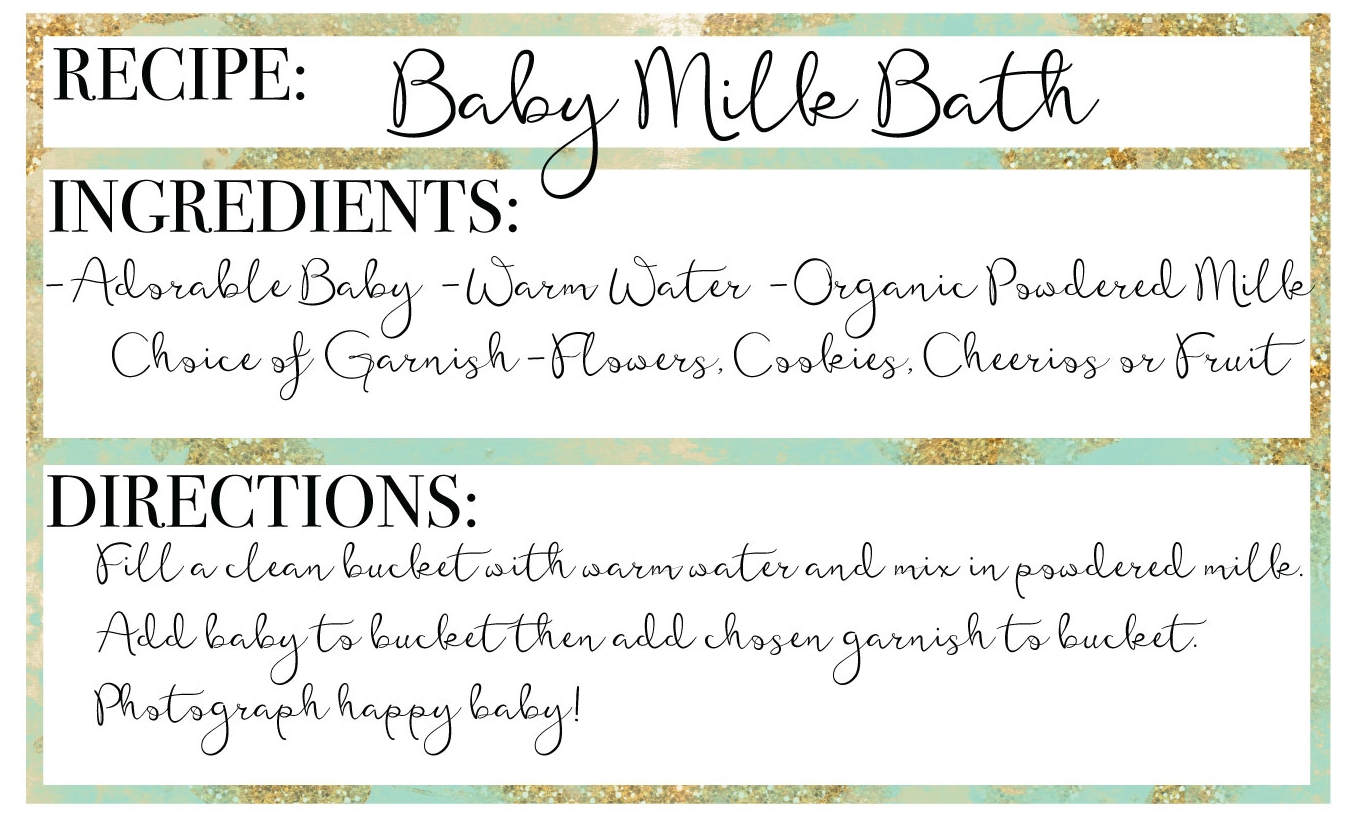 RECIPE: Baby Milk Bath
INGREDIENTS:
-Adorable Baby -Warm Water -Organic Powdered Milk
Choice of Garnish -Flowers, Cookies, Cheerios or Fruit
DIRECTIONS:
Fill a clean bucket with warm water and mix in powdered milk.
Add baby to bucket then add chosen garnish to bucket.
Photograph happy baby!